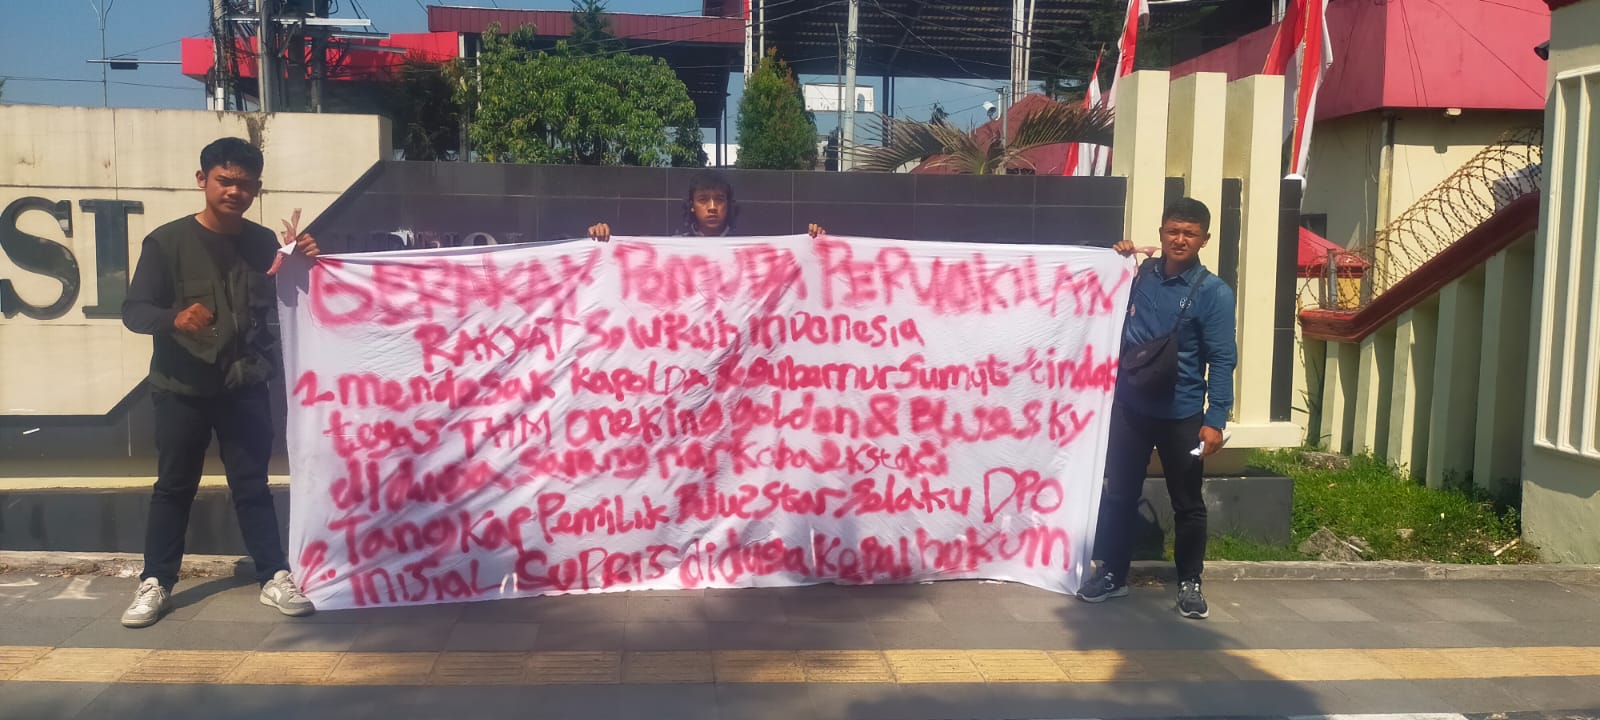 SI
GERAKAN PEMUDA PERWAKILAN
RAKYAT SELURUH INDONESIA
1. mendesak KAPOLDA & Gubarnur Sumut tindak
tegas THM oneking golden & Blue Sky
di duga sarang narkoba ekstaci
2. Tangkap Pemilik Blue Star Selaku DPO
INISIAL SUPRIS di duga Kebal hukum